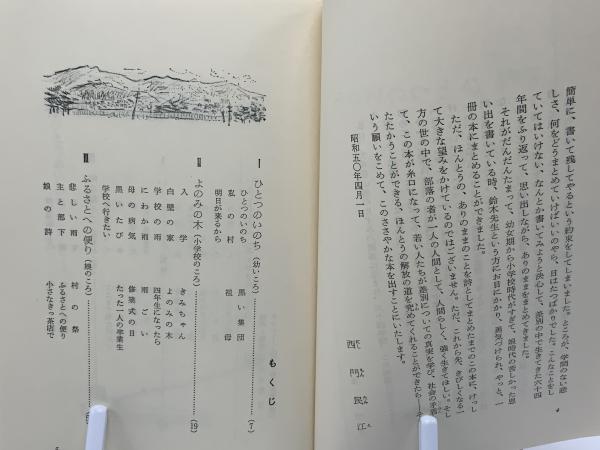 簡単に、書いて残してやるという約束をしてしまいました。ところが、学問のない悲
しさ、何をどうまとめていけばいいのやら、日はたつばかりでした。こんなことをし
ていてはいけない、なんとか書いてみようと決心して、差別の中で生きてきた六十四
年間をふり返って、思い出しながら、ありのままをまとめてきました。
それがだんだんたまって、幼女期から小学校時代がすぎて、娘時代の苦しかった思
い出を書いている時、鈴木先生という方にお目にかかり、勇気づけられ、やっと、一
冊の本にまとめることができました。
ただ、ほんとうの、ありのままのことを詩としてまとめたまでのこの本に、けっし
て大きな望みをかけているのではございません。ただ、これから先、きびしくなる一
方の世の中で、部落の者が一人の人間として、人間らしく、強く生きてほしい。そし
て、この本が糸口になって、若い人たちが差別についての真実を学び、社会の矛盾と
たたかうことができる、ほんとうの解放の道を究めてくれることができたら――そ
いう願いをこめて、このささやかな本を出すことにいたします。
昭和五〇年四月一日
西門民江
もくじ
Ⅰ ひとつのいのち(幼いころ)……(7)
ひとつのいのち 黒い集団
私の村 祖母
明日が来るから
Ⅱ よのみの木(小学校のころ)……(19)
入学 きみちゃん
白壁の家 よのみの木
学校の雨 四年生になったら
にわか雨 雨ごい
母の病気 修業式の日
黒いたび たった一人の卒業生
学校へ行きたい
Ⅲ ふるさとへの便り(娘のころ)……
悲しい雨 村の祭
主と部下 ふるさとへの便り
娘の詩 小さなきっ茶店で